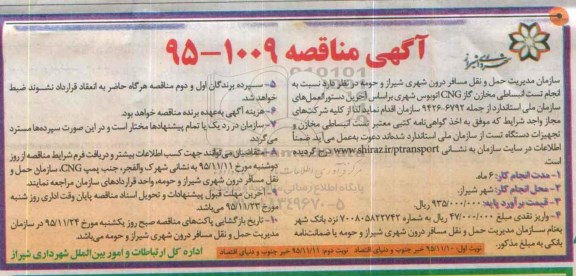 آگهی مناقصه ۱۰۰۹-۹۵
سازمان مدیریت حمل و نقل مسافر درون شهری شیراز و حومه در نظر دارد نسبت به
انجام تست انبساطی مخازن گاز CNG اتوبوس شهری براساس آخرین دستورالعمل‌های
سازمان ملی استاندارد از جمله ۶۷۹۲-۹۴۲۶ سازمان اقدام نماید لذا از کلیه شرکت‌های
مجاز واجد شرایط که موفق به اخذ گواهی‌نامه کتبی معتبر تست انبساطی مخازن و
تجهیزات دستگاه تست از سازمان ملی استاندارد شده‌اند دعوت به‌عمل می‌آید ضمناً
اطلاعات در سایت سازمان به نشانی www.shiraz.ir/ptransport درج گردیده
است.
۱- مدت انجام کار: ۶ ماه
۲- محل انجام کار: شهر شیراز.
۳- قیمت برآورد پایه: ۹۳۵/۰۰۰/۰۰۰ ریال.
۴- واریز نقدی مبلغ ۴۷/۰۰۰/۰۰۰ ریال به شماره ۷۰۰۸۰۵۸۲۲۷۴۲ نزد بانک شهر
به‌نام سازمان مدیریت حمل و نقل مسافر درون شهری شیراز و حومه یا ضمانت‌نامه
بانکی به مبلغ مذکور.
۵- سپرده برندگان اول و دوم مناقصه هرگاه حاضر به انعقاد قرارداد نشوند ضبط
خواهد شد.
۶- هزینه آگهی به‌عهده برنده مناقصه خواهد بود.
۷- سازمان در رد یک یا تمام پیشنهادها مختار است و در این صورت سپرده‌ها مسترد
می‌گردد.
۸- متقاضیان می‌توانند جهت کسب اطلاعات بیشتر و دریافت فرم شرایط مناقصه از روز
دوشنبه مورخ ۹۵/۱۱/۱۱ به نشانی شهرک والفجر، جنب پمپ CNG، سازمان حمل و
نقل مسافر درون شهری شیراز و حومه، واحد قراردادهای سازمان مراجعه نمایند.
۹- آخرین مهلت قبول پیشنهادات و تحویل اسناد مناقصه پایان وقت اداری روز شنبه
مورخ ۹۵/۱۱/۲۳ می‌باشد.
۱۰- تاریخ بازگشایی پاکت‌های مناقصه صبح روز یکشنبه مورخ ۹۵/۱۱/۲۴ در سازمان
مدیریت حمل و نقل مسافر درون شهری شیراز و حومه می‌باشد.
نوبت اول: ۹۵/۱۱/۱۰ خبر جنوب و دنیای اقتصاد نوبت دوم: ۹۵/۱۱/۱۱ خبر جنوب و دنیای اقتصاد
اداره کل ارتباطات و امور بین‌الملل شهرداری شیراز